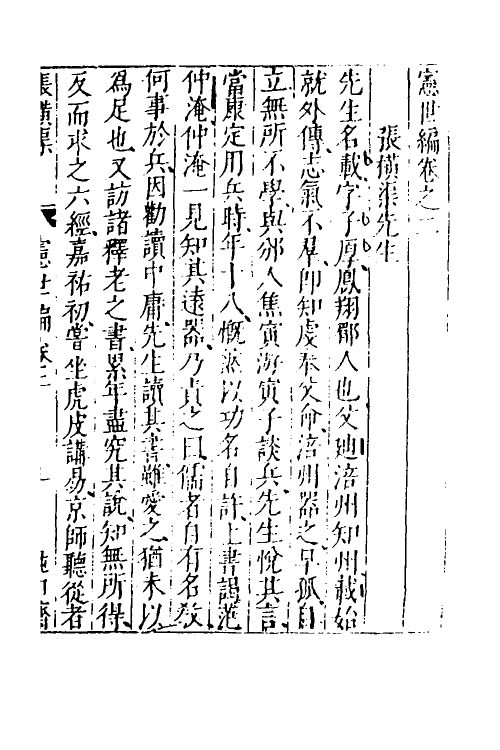 憲世編卷之二
張橫渠先生
先生名載字子厚鳳翔郡人也父迪涪州知州載始
就外傅志氣不羣卽知虔奉父命涪州器之早孤自
立無所不學與邠人焦寅游寅子談兵先生悅其言
當康定用兵時年十八慨然以功名自許上書謁范
仲淹仲淹一見知其遠器乃責之曰儒者自有名教
何事於兵因勸讀中庸先生讀其書雖愛之猶未以
爲足也又訪諸釋老之書累年盡究其說知無所得
反而求之六經嘉祐初嘗坐虎皮講易京師聽從者
張橫渠
憲世編卷二